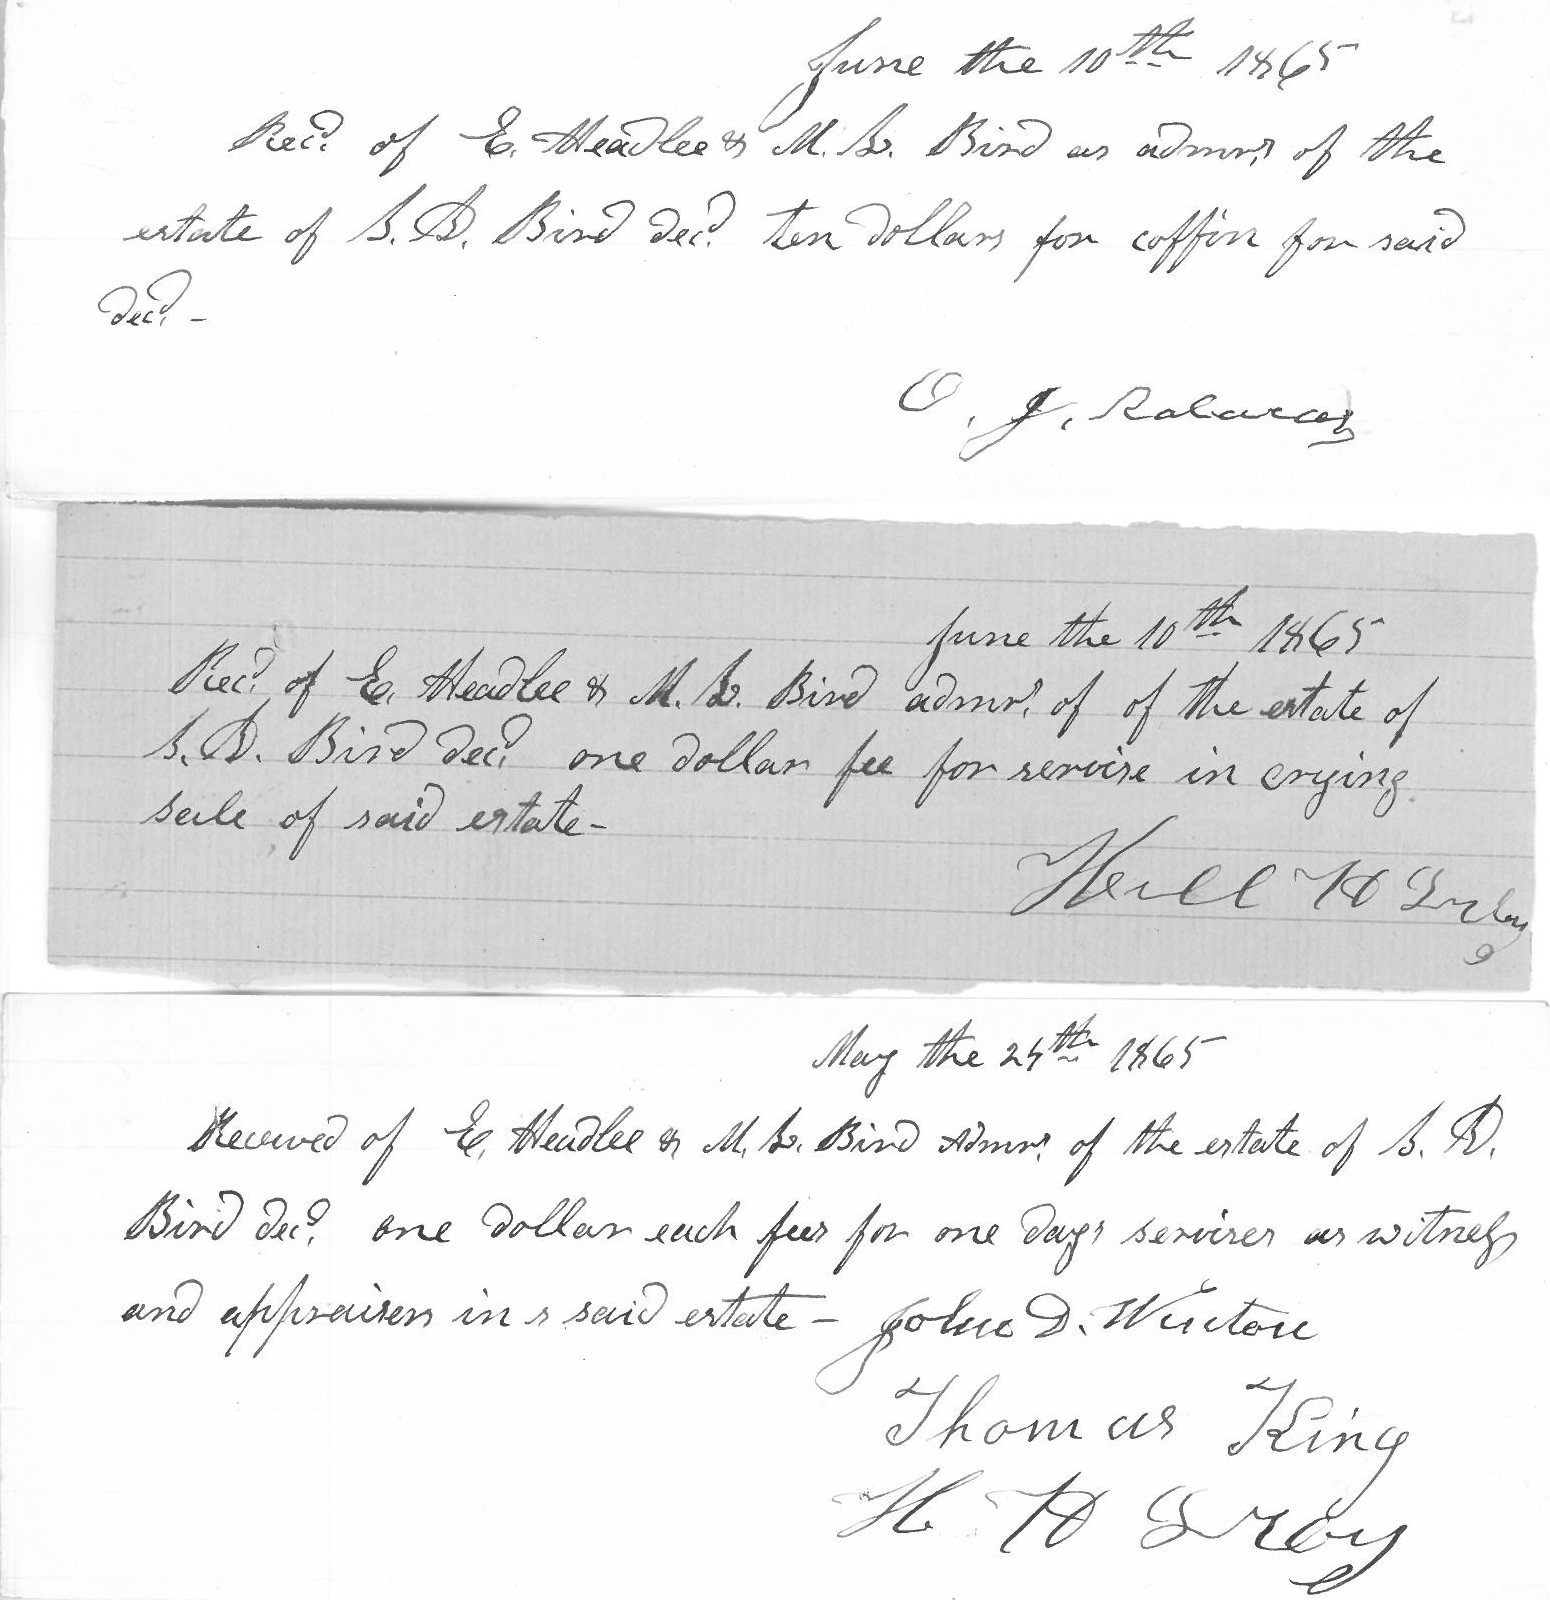 June the 10th 1865
Recd. of E. Headlee & M. L. Bird as admrs. of the
estate of S. B. Bird decd. ten dollars for coffin for said
decd. –
O. J.
June the 10th 1865
Recd. of E. Headlee & M. L. Bird admrs. of of the estate of
S. B. Bird decd. one dollar fee for servise in crying
sale of said estate –
H
May the 25th 1865
Received of E. Headlee & M. L. Bird Admrs. of the estate of S. B.
Bird decd. one dollar each fees for one days servises as witness
and appraisers in s said estate – John D. Winton
Thomas King
H H Gray